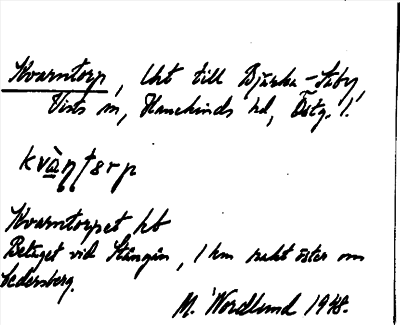 Kvarntorp, lht till Bjärka-Säby,
Vists sn, Hanekinds hd, Östg. l.
kvàṇṭơrp
Kvarntorpet hb
Beläget vid Stångån, 1 km rakt öster om
Sedersberg.
M. Nordlund 1948.